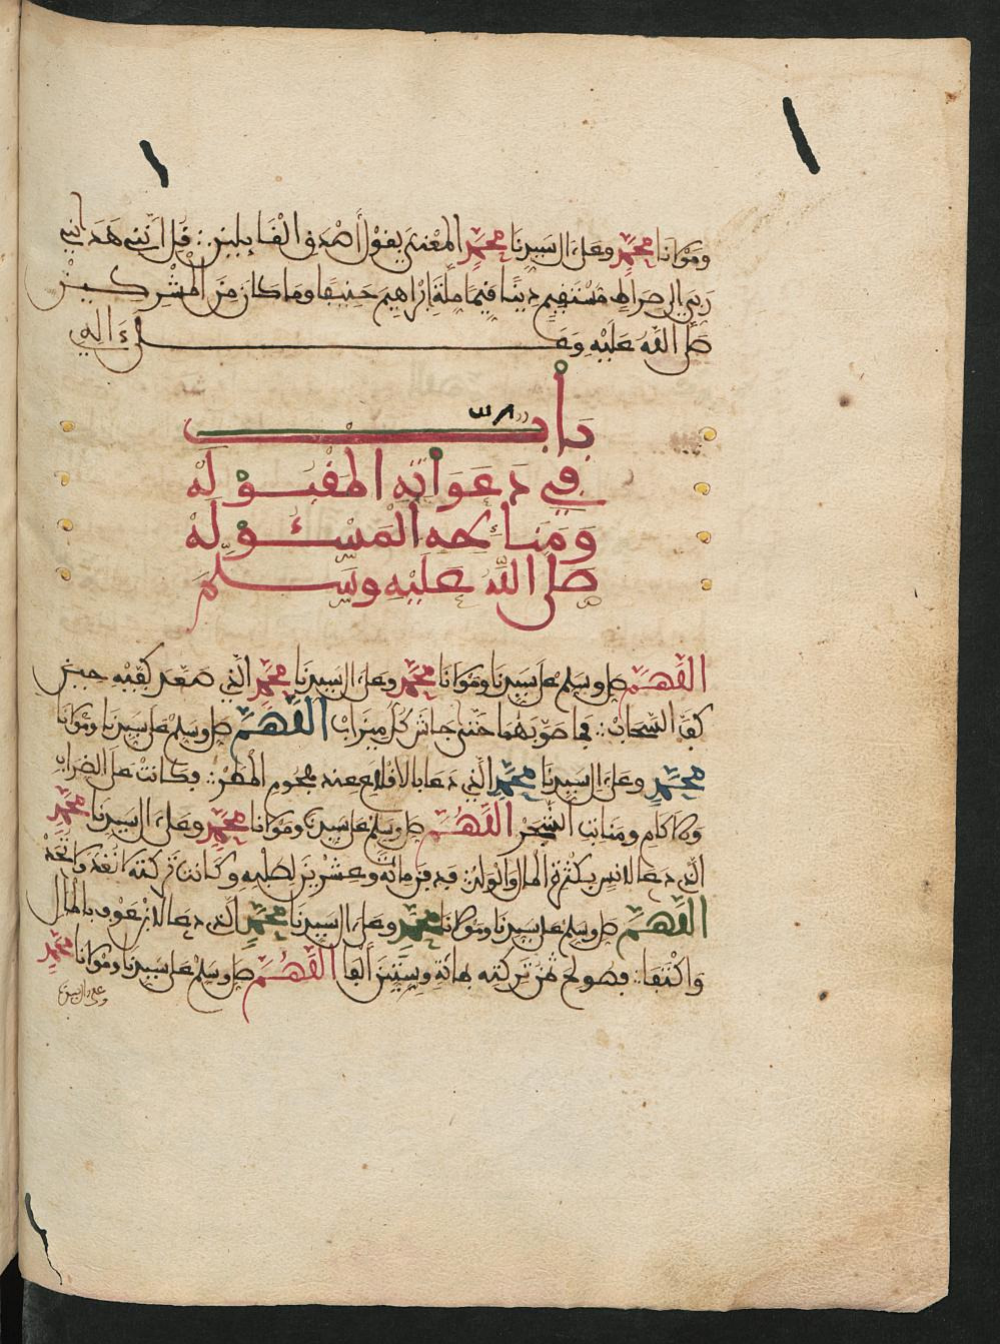 ومولانا محمد وعلى ءال سيدنا محمد المغتنى بقول أصدق القايلين قل انني هداني
ربي الى صراط مستقيم دينا قيما ملة ابراهيم حنيفا وما كان من المشركين
صلى الله عليه وعلى ءاله
باب
في دعواته المقبولة
ومنائحه المسئولة
صلى الله عليه وسلم
اللهم صل وسلم على سيدنا ومولانا محمد وعلى ءال سيدنا محمد الذي كفيه حين
كف السحاب فما صوبهما حتى جاش كل ميزاب اللهم صل وسلم على سيدنا ومولانا
محمد وعلى ءال سيدنا محمد الذي دعا بالاقلاع عند المطر فكانت على الضراب
والاكام ومنابت الشجر اللهم صل وسلم على سيدنا ومولانا محمد وعلى ءال سيدنا محمد
الذي دعا لانس بكثرة المال والولد فدفن مائة وعشرين لصلبه وكانت تركته
اللهم صل وسلم على سيدنا ومولانا محمد وعلى ءال سيدنا محمد الذي دعا لابن عوف بالمال
فصولح من تركته بمائة وستين ألفا اللهم صل وسلم على سيدنا ومولانا محمد
وعلى ءال سيدنا